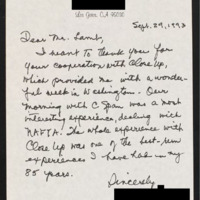 San Jose, CA 95120
Sept. 29, 1993
Dear Mr. Lamb,
I meant to thank you for
your cooperation with Close Up,
which provided me with a wonder-
ful week in Washington. Our
morning with C Span was a most
interesting experience, dealing with
NAFTA. The whole experience with
Close Up was one of the best-run
experiences I have had in my
85 years.
Sincerely,